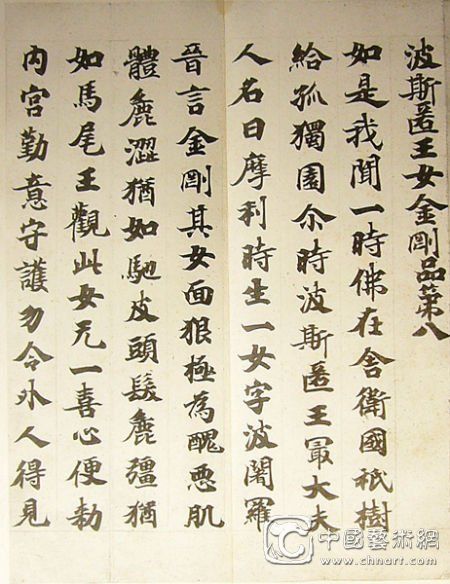 波斯匿王女金剛品第八
如是我聞一時佛在舍衛國祇樹
給孤獨園尒時波斯匿王冣大夫
人名曰摩利時生一女字波闍羅
晉言金剛其女面狠極為醜惡肌
體麁澀猶如馳皮頭髮麁彊猶
如馬尾王觀此女无一喜心便勅
內宮勤意守護勿令外人得見
中國藝術網
www.chnart.com